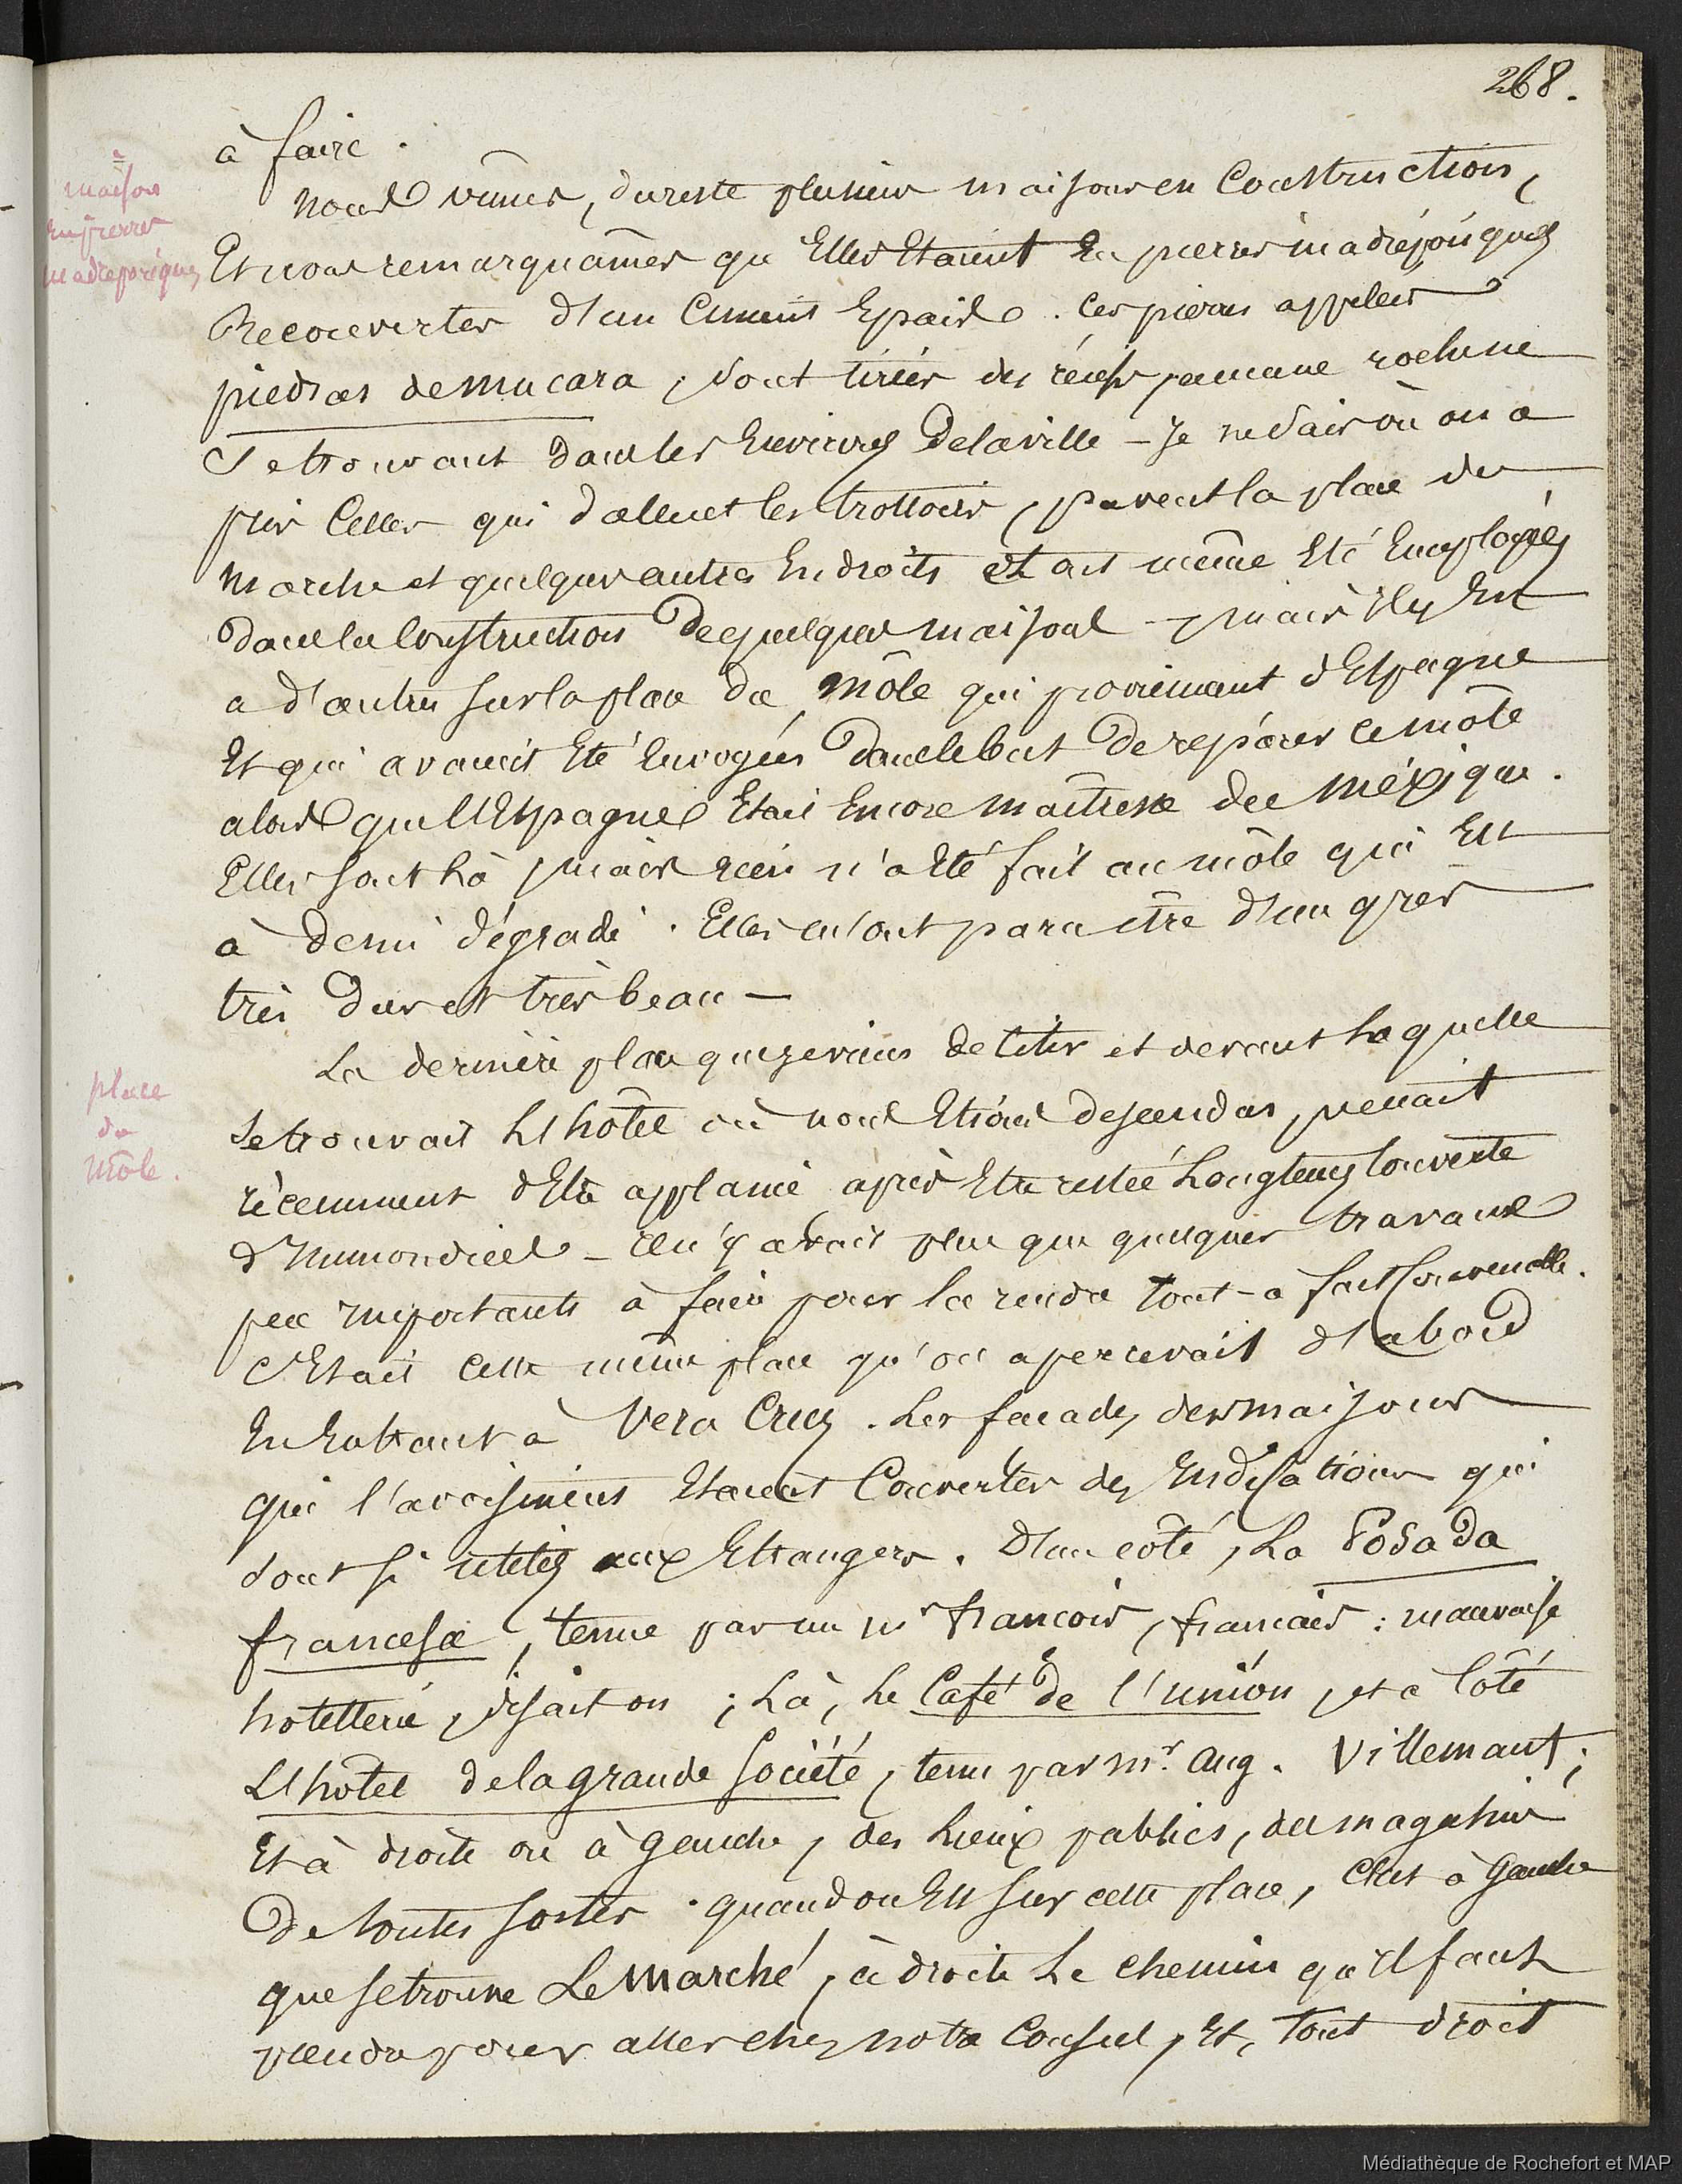 268.
à faire.
nous vîmes, du reste plusieurs maisons en Construction,
maisons
en pierres
madréporiques
Et nous remarquâmes qu'Elles Etaient En pierres madréporiques
Recouvertes d'un Ciment Epais. Ces pierres appelées
piedras de mucara, sont tirées des récifs
se trouvant dans les Environs de la ville - Je ne sais où on a
pris Celles qui dallent les trottoirs, pavent la place du
marché et quelques autres Endroits et ont même Eté Employées
dans la Construction de quelques maisons - mais il y En
a d'autres sur la place du Môle qui proviennent d'Espagne
Et qui avaient Eté Envoyées dans le but de réparer ce môle
alors que l'Espagne Etait Encore maitresse du Méxique.
Elles sont là, mais rien n'a Eté fait au môle qui Est
à demi dégradé. Elles m'ont paru être d'un grès
très dur et très beau —
La dernière place que je viens de citer et devant laquelle
place
du
Môle.
se trouvait L'hôtel où nous Etions descendus, venait
récemment d'Etre applanie après Etre restée Longtemps Couverte
d'Immondices - Il n'y avait plus que quelques travaux
peu Importants à faire pour la rendre tout-a fait Convenable.
C'Etait cette même place qu'on apercevait d'abord
En Entrant à Vera Cruz. Les façades des maisons
qui l'avoisinent Etaient Couvertes des Indications qui
sont si utiles aux Etrangers. D'un côté, La Posada
francesa, tenue par un Mr françois, français: mauvaise
hotellerie, disait on; Là, Le Café de l'union, et a Côté
L'hôtel de la grande Société, tenu par Mr. Aug. Villemant;
Et à droite ou à gauche, des Lieux publics, des magasins
De toutes sortes. quand on Est sur cette place, C'est à Gauche
que se trouve Le Marché, à droite Le chemin qu'il faut
prendre pour aller chez notre Consul, Et, tout droit
Médiathèque de Rochefort et MAP